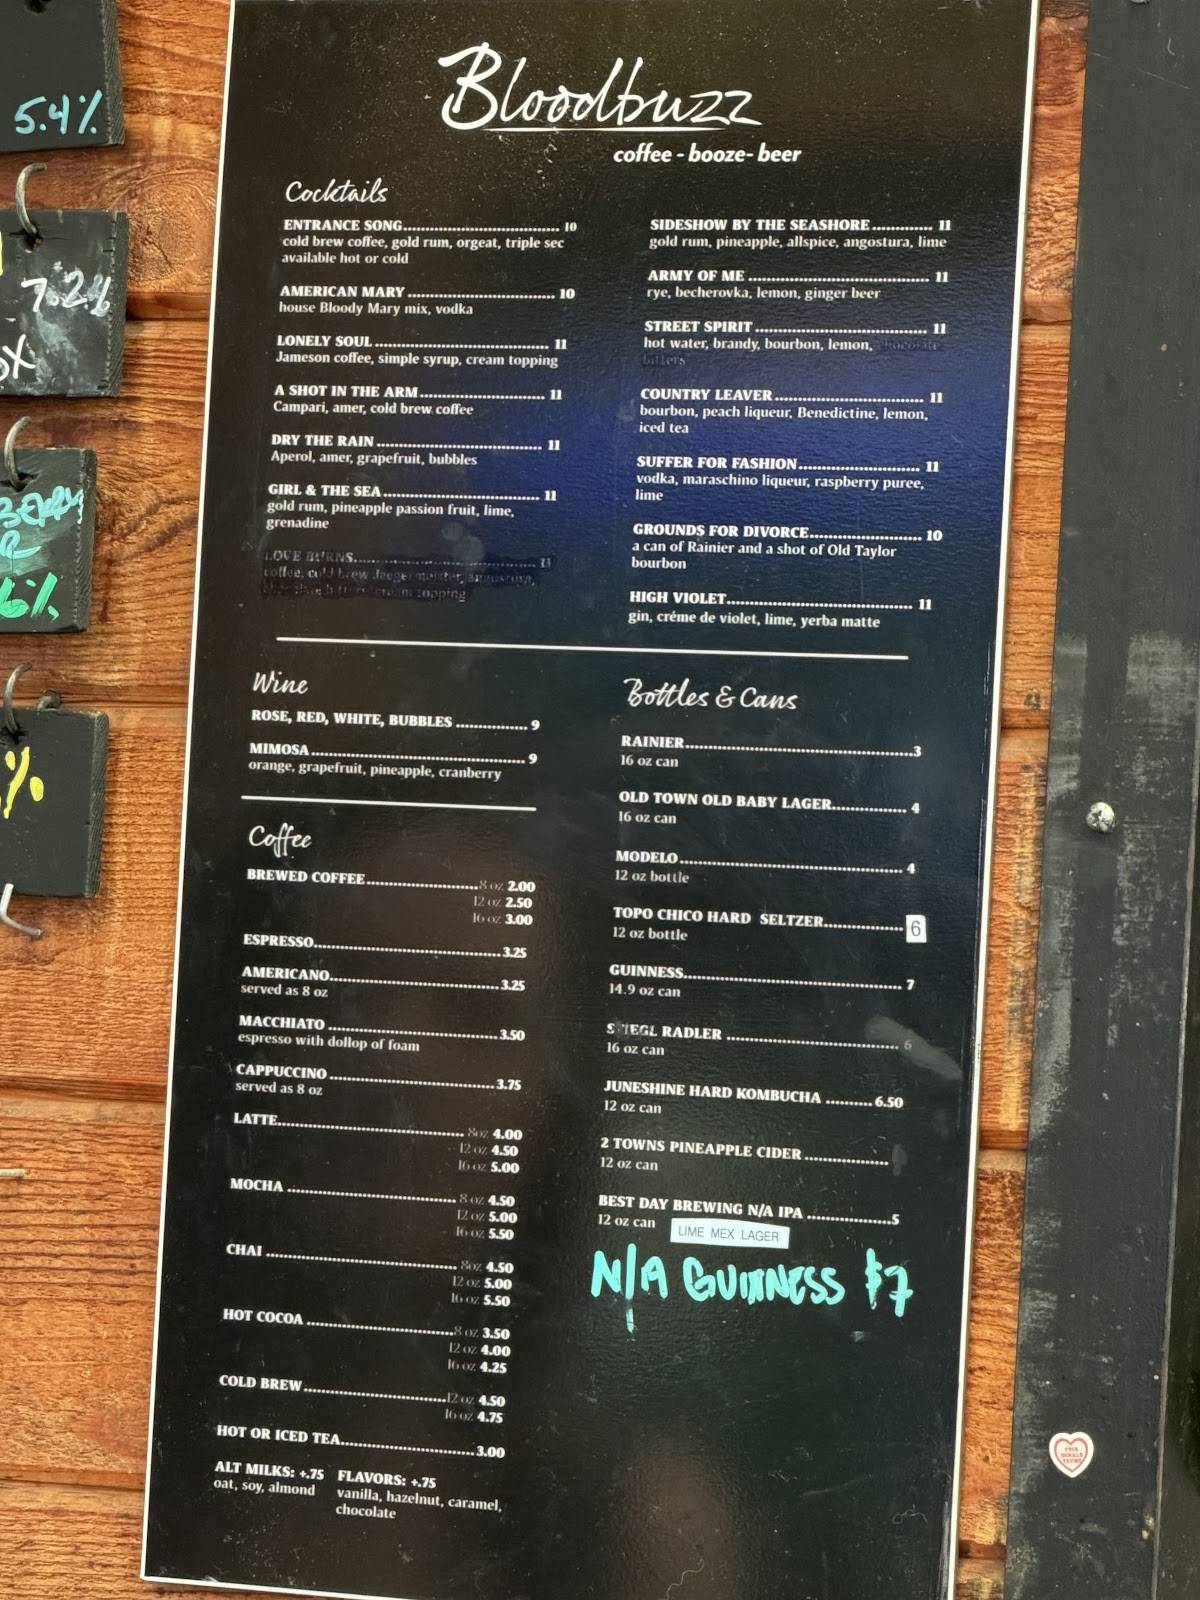 5.4%
7.2%
OX
6%
%
Bloodbuzz
coffee - booze- beer
Cocktails
ENTRANCE SONG.......... 10
cold brew coffee, gold rum, orgeat, triple sec
available hot or cold
AMERICAN MARY.......... 10
house Bloody Mary mix, vodka
LONELY SOUL.......... 11
Jameson coffee, simple syrup, cream topping
A SHOT IN THE ARM.......... 11
Campari, amer, cold brew coffee
DRY THE RAIN.......... 11
Aperol, amer, grapefruit, bubbles
GIRL & THE SEA.......... 11
gold rum, pineapple passion fruit, lime,
grenadine
LOVE BURNS.......... 11
coffee, cold brew Jaegermeister, angostura,
chocolate bitters, cream topping
SIDESHOW BY THE SEASHORE.......... 11
gold rum, pineapple, allspice, angostura, lime
ARMY OF ME.......... 11
rye, becherovka, lemon, ginger beer
STREET SPIRIT.......... 11
hot water, brandy, bourbon, lemon, chocolate
bitters
COUNTRY LEAVER.......... 11
bourbon, peach liqueur, Benedictine, lemon,
iced tea
SUFFER FOR FASHION.......... 11
vodka, maraschino liqueur, raspberry puree,
lime
GROUNDS FOR DIVORCE.......... 10
a can of Rainier and a shot of Old Taylor
bourbon
HIGH VIOLET.......... 11
gin, créme de violet, lime, yerba matte
Wine
ROSE, RED, WHITE, BUBBLES.......... 9
MIMOSA.......... 9
orange, grapefruit, pineapple, cranberry
Coffee
BREWED COFFEE..........8 oz 2.00
12 oz 2.50
16 oz 3.00
ESPRESSO.......... 3.25
AMERICANO.......... 3.25
served as 8 oz
MACCHIATO.......... 3.50
espresso with dollop of foam
CAPPUCCINO.......... 3.75
served as 8 oz
LATTE.......... 8oz 4.00
12 oz 4.50
16 oz 5.00
MOCHA.......... 8 oz 4.50
12 oz 5.00
16 oz 5.50
CHAI.......... 8oz 4.50
12 oz 5.00
16 oz 5.50
HOT COCOA..........8 oz 3.50
12 oz 4.00
16 oz 4.25
COLD BREW..........12 oz 4.50
16 oz 4.75
HOT OR ICED TEA.......... 3.00
ALT MILKS: +.75 FLAVORS: +.75
oat, soy, almond vanilla, hazelnut, caramel,
chocolate
Bottles & Cans
RAINIER..........3
16 oz can
OLD TOWN OLD BABY LAGER.......... 4
16 oz can
MODELO.......... 4
12 oz bottle
TOPO CHICO HARD SELTZER.......... 6
12 oz bottle
GUINNESS.......... 7
14.9 oz can
STIEGL RADLER.......... 6
16 oz can
JUNESHINE HARD KOMBUCHA.......... 6.50
12 oz can
2 TOWNS PINEAPPLE CIDER..........
12 oz can
BEST DAY BREWING N/A IPA..........5
12 oz can LIME MEX LAGER
N/A GUINNESS $7